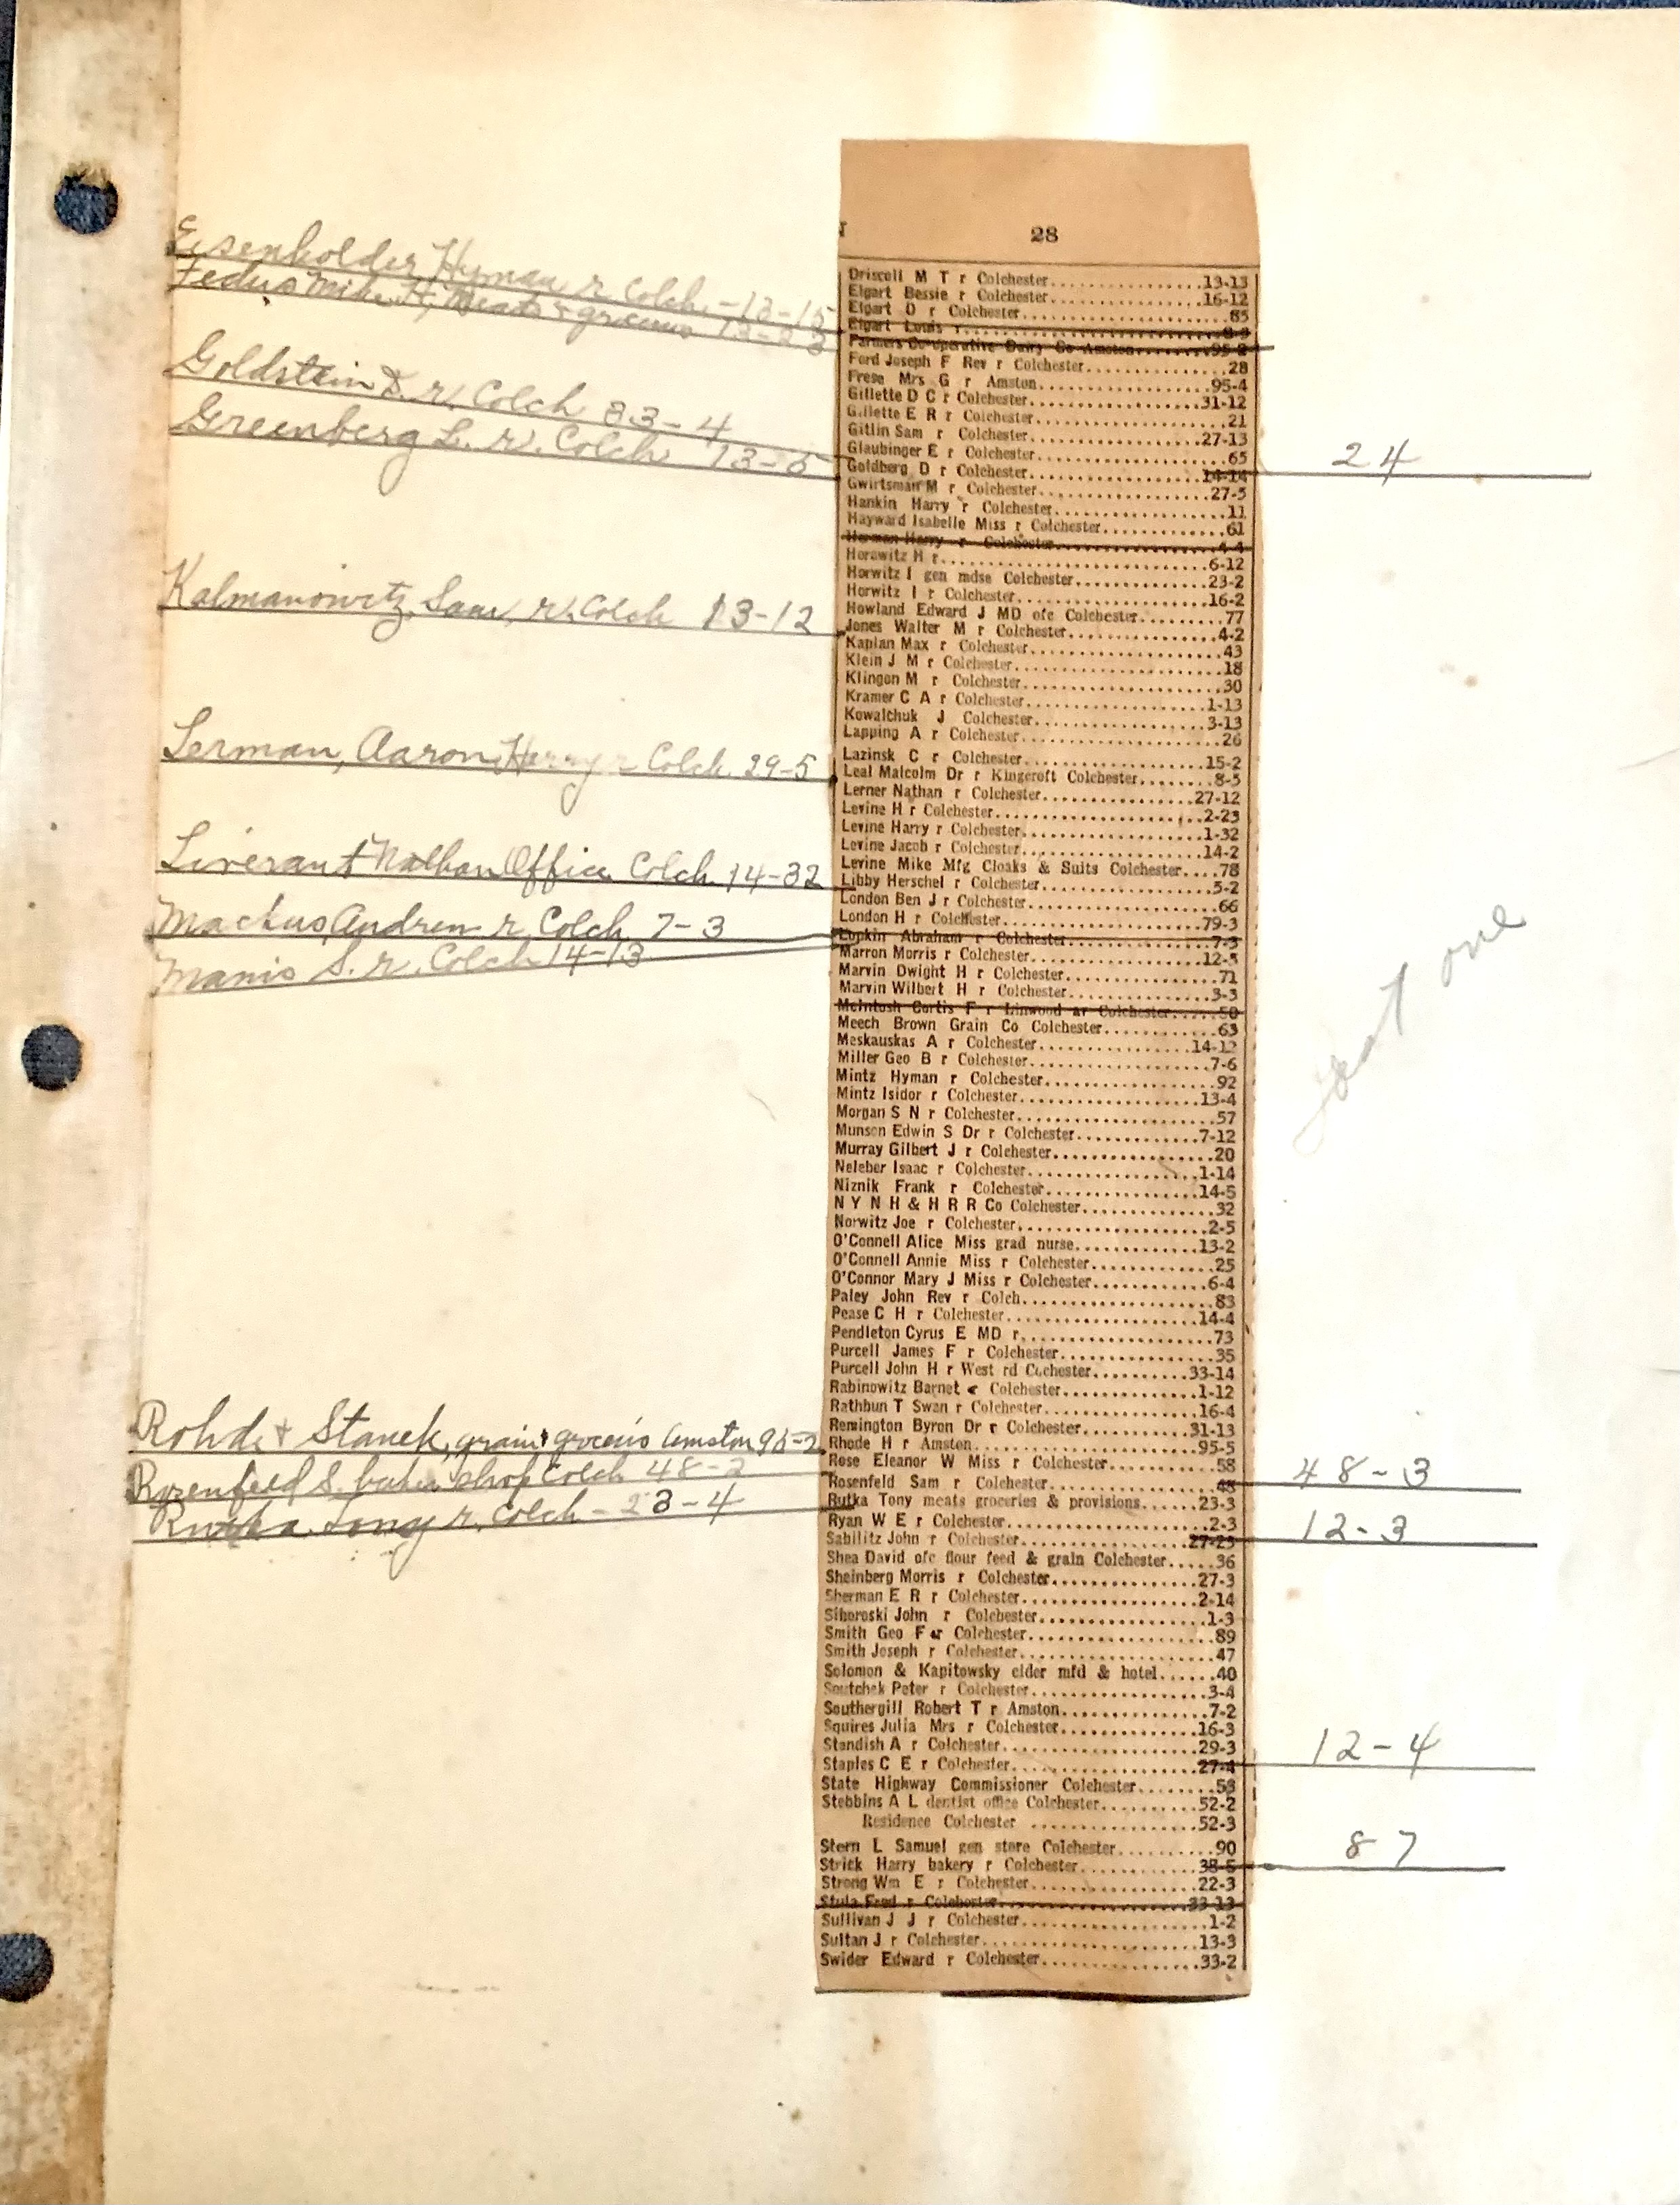 28
Eisenholder Hyman r Colch - 13-15
Fedus Mike Meats & groceries 13-23
Goldstein r. Colch 33-4
Greenberg L. r. Colch 13-5
Kalmanowitz, Sam, r. Colch 13-12
Lerman, Aaron Henry r Colch. 29-5
Liverant Nathan Office Colch. 14-32
Mackus, Andrew r. Colch. 7-3
Manis S. r. Colch 14-13
Rohde & Stanek, grain & groceries Amston 95-2
Rozenfeld S. baker shop Colch 48-2
Rutka Tony r. Colch - 23-4
Driscoll M T r Colchester 13-13
Elgart Bessie r Colchester 16-12
Elgart D r Colchester 85
Elgart Louis r
Farmers Co-operative Dairy Co Amston 95-2
Ford Joseph F Rev r Colchester 28
Frese Mrs G r Amston 95-4
Gillette D C r Colchester 31-12
Gillette E R r Colchester 21
Gitlin Sam r Colchester 27-13
Glaubinger E r Colchester 65
Goldberg D r Colchester 14-14
Gwirtsman M r Colchester 27-5
Hankin Harry r Colchester 11
Hayward Isabelle Miss r Colchester 61
Herman Harry r Colchester 4-4
Horawitz H r 6-12
Horwitz I gen mdse Colchester 23-2
Horwitz I r Colchester 16-2
Howland Edward J MD ofc Colchester 77
Jones Walter M r Colchester 4-2
Kaplan Max r Colchester 43
Klein J M r Colchester 18
Klingon M r Colchester 30
Kramer C A r Colchester 1-13
Kowalchuk J Colchester 3-13
Lapping A r Colchester 26
Lazinsk C r Colchester 15-2
Leal Malcolm Dr r Kingcroft Colchester 8-5
Lerner Nathan r Colchester 27-12
Levine H r Colchester 2-23
Levine Harry r Colchester 1-32
Levine Jacob r Colchester 14-2
Levine Mike Mfg Cloaks & Suits Colchester 78
Libby Herschel r Colchester 5-2
London Ben J r Colchester 66
London H r Colchester 79-3
Lopkin Abraham r Colchester 7-3
Marron Morris r Colchester 12-5
Marvin Dwight H r Colchester 71
Marvin Wilbert H r Colchester 3-3
McIntosh Curtis F r Linwood av Colchester 50
Meech Brown Grain Co Colchester 63
Meskauskas A r Colchester 14-12
Miller Geo B r Colchester 7-6
Mintz Hyman r Colchester 92
Mintz Isidor r Colchester 13-4
Morgan S N r Colchester 57
Munson Edwin S Dr r Colchester 7-12
Murray Gilbert J r Colchester 20
Neleber Isaac r Colchester 1-14
Niznik Frank r Colchester 14-5
N Y N H & H R R Co Colchester 32
Norwitz Joe r Colchester 2-5
O'Connell Alice Miss grad nurse 13-2
O'Connell Annie Miss r Colchester 25
O'Connor Mary J Miss r Colchester 6-4
Paley John Rev r Colch 83
Pease C H r Colchester 14-4
Pendleton Cyrus E MD r 73
Purcell James F r Colchester 35
Purcell John H r West rd Cochester 33-14
Rabinowitz Barnet r Colchester 1-12
Rathbun T Swan r Colchester 16-4
Remington Byron Dr r Colchester 31-13
Rhode H r Amston 95-5
Rose Eleanor W Miss r Colchester 58
Rosenfeld Sam r Colchester 48
Rutka Tony meats groceries & provisions 23-3
Ryan W E r Colchester 2-3
Sabilitz John r Colchester 27-23
Shea David ofc flour feed & grain Colchester 36
Sheinberg Morris r Colchester 27-3
Sherman E R r Colchester 2-14
Siboroski John r Colchester 1-3
Smith Geo F r Colchester 89
Smith Joseph r Colchester 47
Solomon & Kapitowsky cider mfd & hotel 40
Soutchek Peter r Colchester 3-4
Southergill Robert T r Amston 7-2
Squires Julia Mrs r Colchester 16-3
Standish A r Colchester 29-3
Staples C E r Colchester 27-4
State Highway Commissioner Colchester 53
Stebbins A L dentist office Colchester 52-2
Residence Colchester 52-3
Stern L Samuel gen store Colchester 90
Strick Harry bakery r Colchester 38-5
Strong Wm E r Colchester 22-3
Stula Fred r Colchester 33-13
Sullivan J J r Colchester 1-2
Sultan J r Colchester 13-3
Swider Edward r Colchester 33-2
24
just one
48-3
12-3
12-4
87